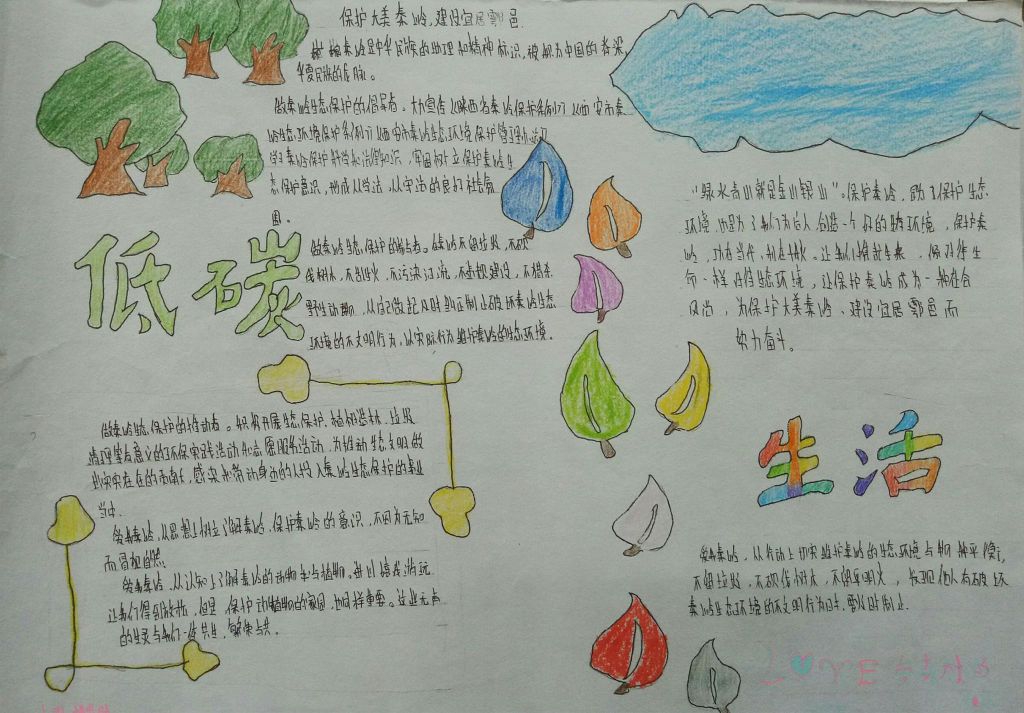 保护大美秦岭,建设宜居鄠邑.
秦岭是中华民族的地理和精神标识,被视为中国的脊梁,
华夏民族的龙脉。
做秦岭生态保护的倡导者。大力宣传《陕西省秦岭保护条例》《西安市秦
岭生态环境保护条例》《西安市秦岭生态环境保护管理办法》
学习秦岭保护科学和法律知识,牢固树立保护秦岭生
态保护意识,形成从学法,从守法的良好社会氛
围。
低碳
做秦岭生态保护的参与者。做到不留垃圾,不砍
伐树木,不乱生火,不污染江流,不违规建设,不捕杀
野生动物,从自己做起及时纠正制止破坏秦岭生态
环境的不文明行为,以实际行为维护秦岭的生态环境.
做秦岭生态保护的推动者。积极开展生态保护、植树造林、垃圾
清理等有意义的环保实践活动和志愿服务活动,为推动生态文明做
出实实在在的贡献,感染和带动身边的人投入秦岭生态保护的事业
当中.
爱我秦岭,从思想上树立了解秦岭、保护秦岭的意识,不因为无知
而冒犯自然.
爱我秦岭,从认知上了解秦岭的动物和与植物。
让我们得到放松,但是,保护动植物的家园,也同样重要。
的生灵与我们一样共生
“绿水青山就是金山银山”。保护秦岭,既为了保护生态
环境,也是为了我们为后人创造一个好的 环境,保护秦
岭,功在当代,利在千秋,让我们携起手来,像对待生
命一样对待生态环境,让保护秦岭成为一种社会
风尚,为保护大美秦岭,建设宜居鄠邑而
努力奋斗。
生活
爱我秦岭,从行动上切实维护秦岭的生态环境与物种平衡,
不留垃圾,不砍伐树木,不留无明火,发现他人有破坏
秦岭生态环境的不文明行为时,要及时制止.